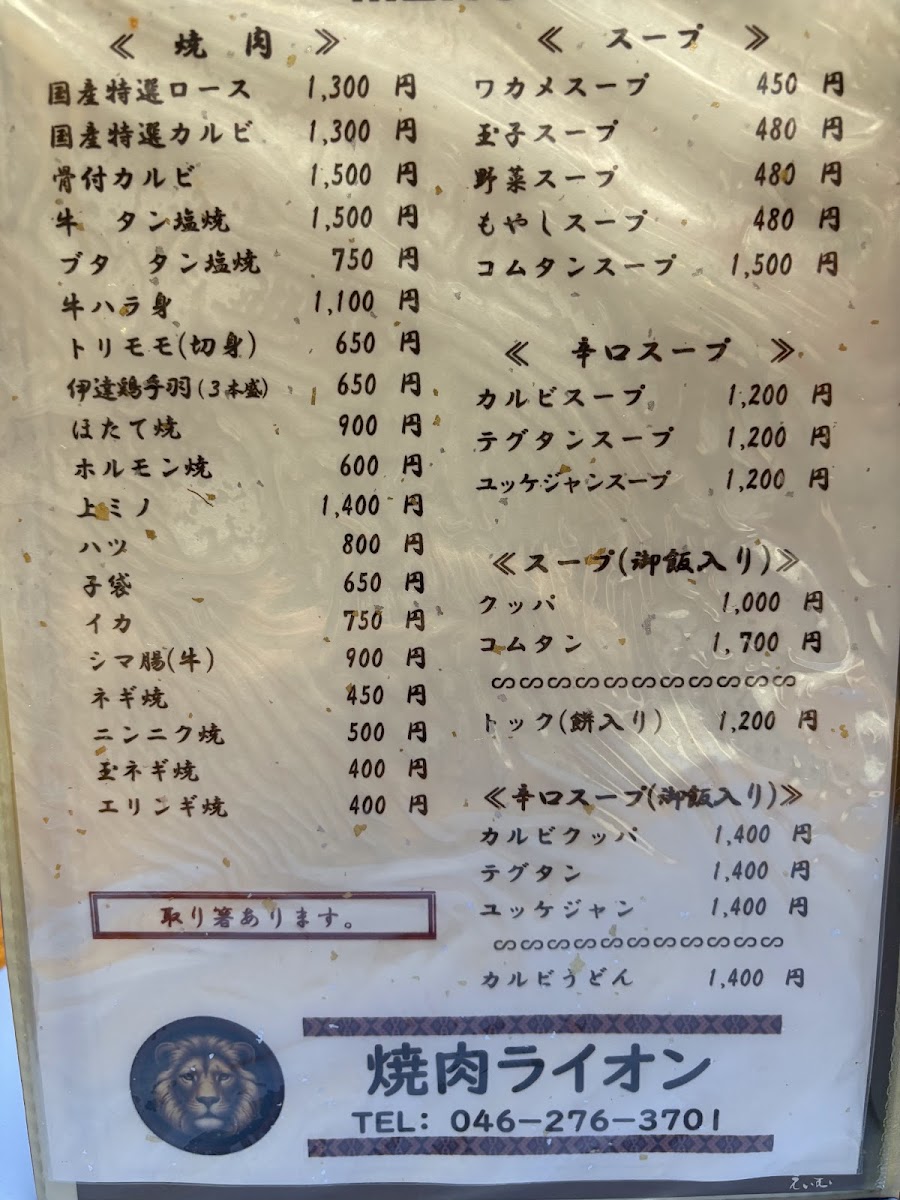 ≪ 焼 肉 ≫
国産特選ロース 1,300 円
国産特選カルビ 1,300 円
骨付カルビ 1,500 円
牛 タン塩焼 1,500 円
ブタ タン塩焼 750 円
牛ハラ身 1,100 円
トリモモ(切身) 650 円
伊達鶏手羽(3本盛) 650 円
ほたて焼 900 円
ホルモン焼 600 円
上ミノ 1,400 円
ハツ 800 円
子袋 650 円
イカ 750 円
シマ腸(牛) 900 円
ネギ焼 450 円
ニンニク焼 500 円
玉ネギ焼 400 円
エリンギ焼 400 円
取り箸あります。
≪ スープ ≫
ワカメスープ 450 円
玉子スープ 480 円
野菜スープ 480 円
もやしスープ 480 円
コムタンスープ 1,500 円
≪ 辛口スープ ≫
カルビスープ 1,200 円
テグタンスープ 1,200 円
ユッケジャンスープ 1,200 円
≪スープ(御飯入り)≫
クッパ 1,000 円
コムタン 1,700 円
トック(餅入り) 1,200 円
≪辛口スープ(御飯入り)≫
カルビクッパ 1,400 円
テグタン 1,400 円
ユッケジャン 1,400 円
カルビうどん 1,400 円
焼肉ライオン
TEL: 046-276-3701